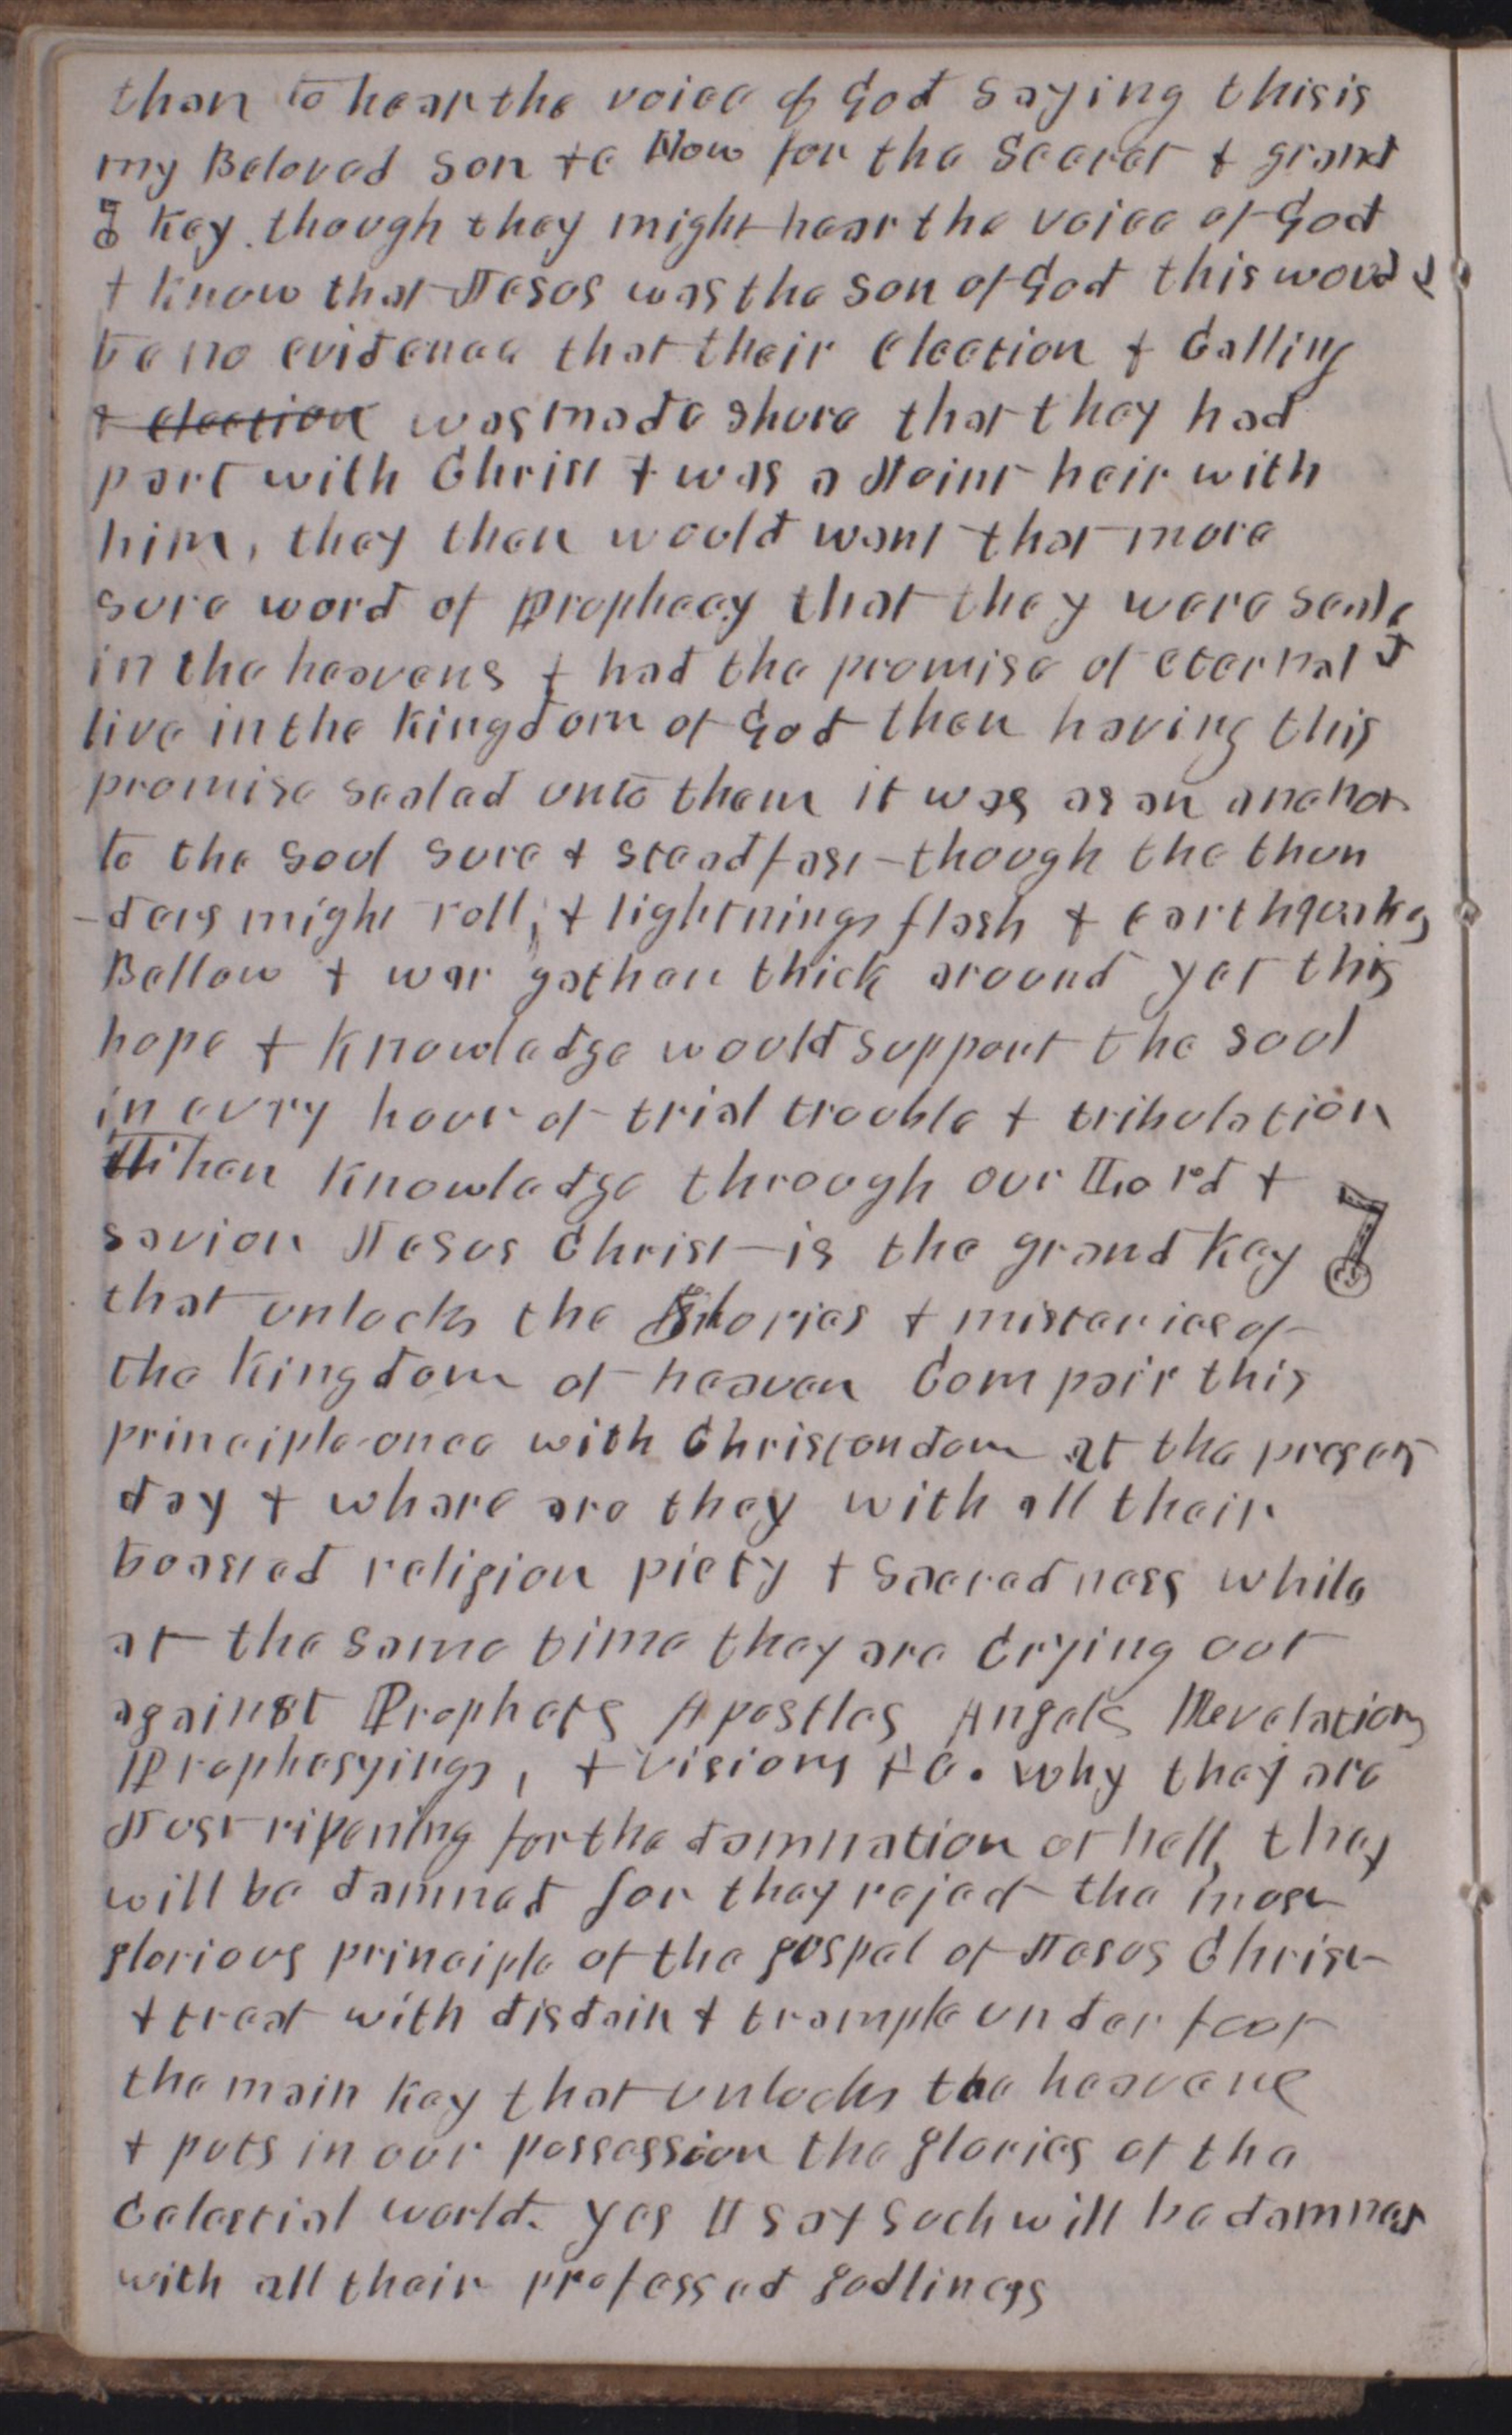 than to hear the voice of God saying this is
my Beloved Son &c Now for the Secret & grand
Key. though they might hear the voice of God
& know that Jesus was the son of God this would
be no evidence that their election & Calling
& election was made shure that they had
part with Christ & was a Joint heir with
him, they then would want that more
sure word of Prophecy that they were seale
in the heavens & had the promise of eternal d
live in the kingdom of God then having this
promise sealed unto them it was as an anchor
to the soul sure & steadfast though the thun
-ders might roll, & lightnings flash & earthquakes
Bellow & war gather thick around yet this
hope & knowledge would support the soul
in evry hour of trial trouble & tribulation
Then knowledge through our Lord &
savior Jesus Christ is the grand Key
that unlocks the glories & misteries of
the kingdom of heaven Compair this
principle once with Christendom at the present
day & whare are they with all their
boasted religion piety & sacredness while
at the same time they are Crying out
against Prophets Apostles Angels Revelations
Prophesyings, & Visions &c. Why they are
Just ripening for the damnation of hell, they
will be damned for they reject the most
glorious principle of the gospel of Jesus Christ
& treat with disdain & trample under foot
the main key that unlocks the heavens
& puts in our possession the glories of the
Celestial world. yes I say such will be damned
with all their professed godliness